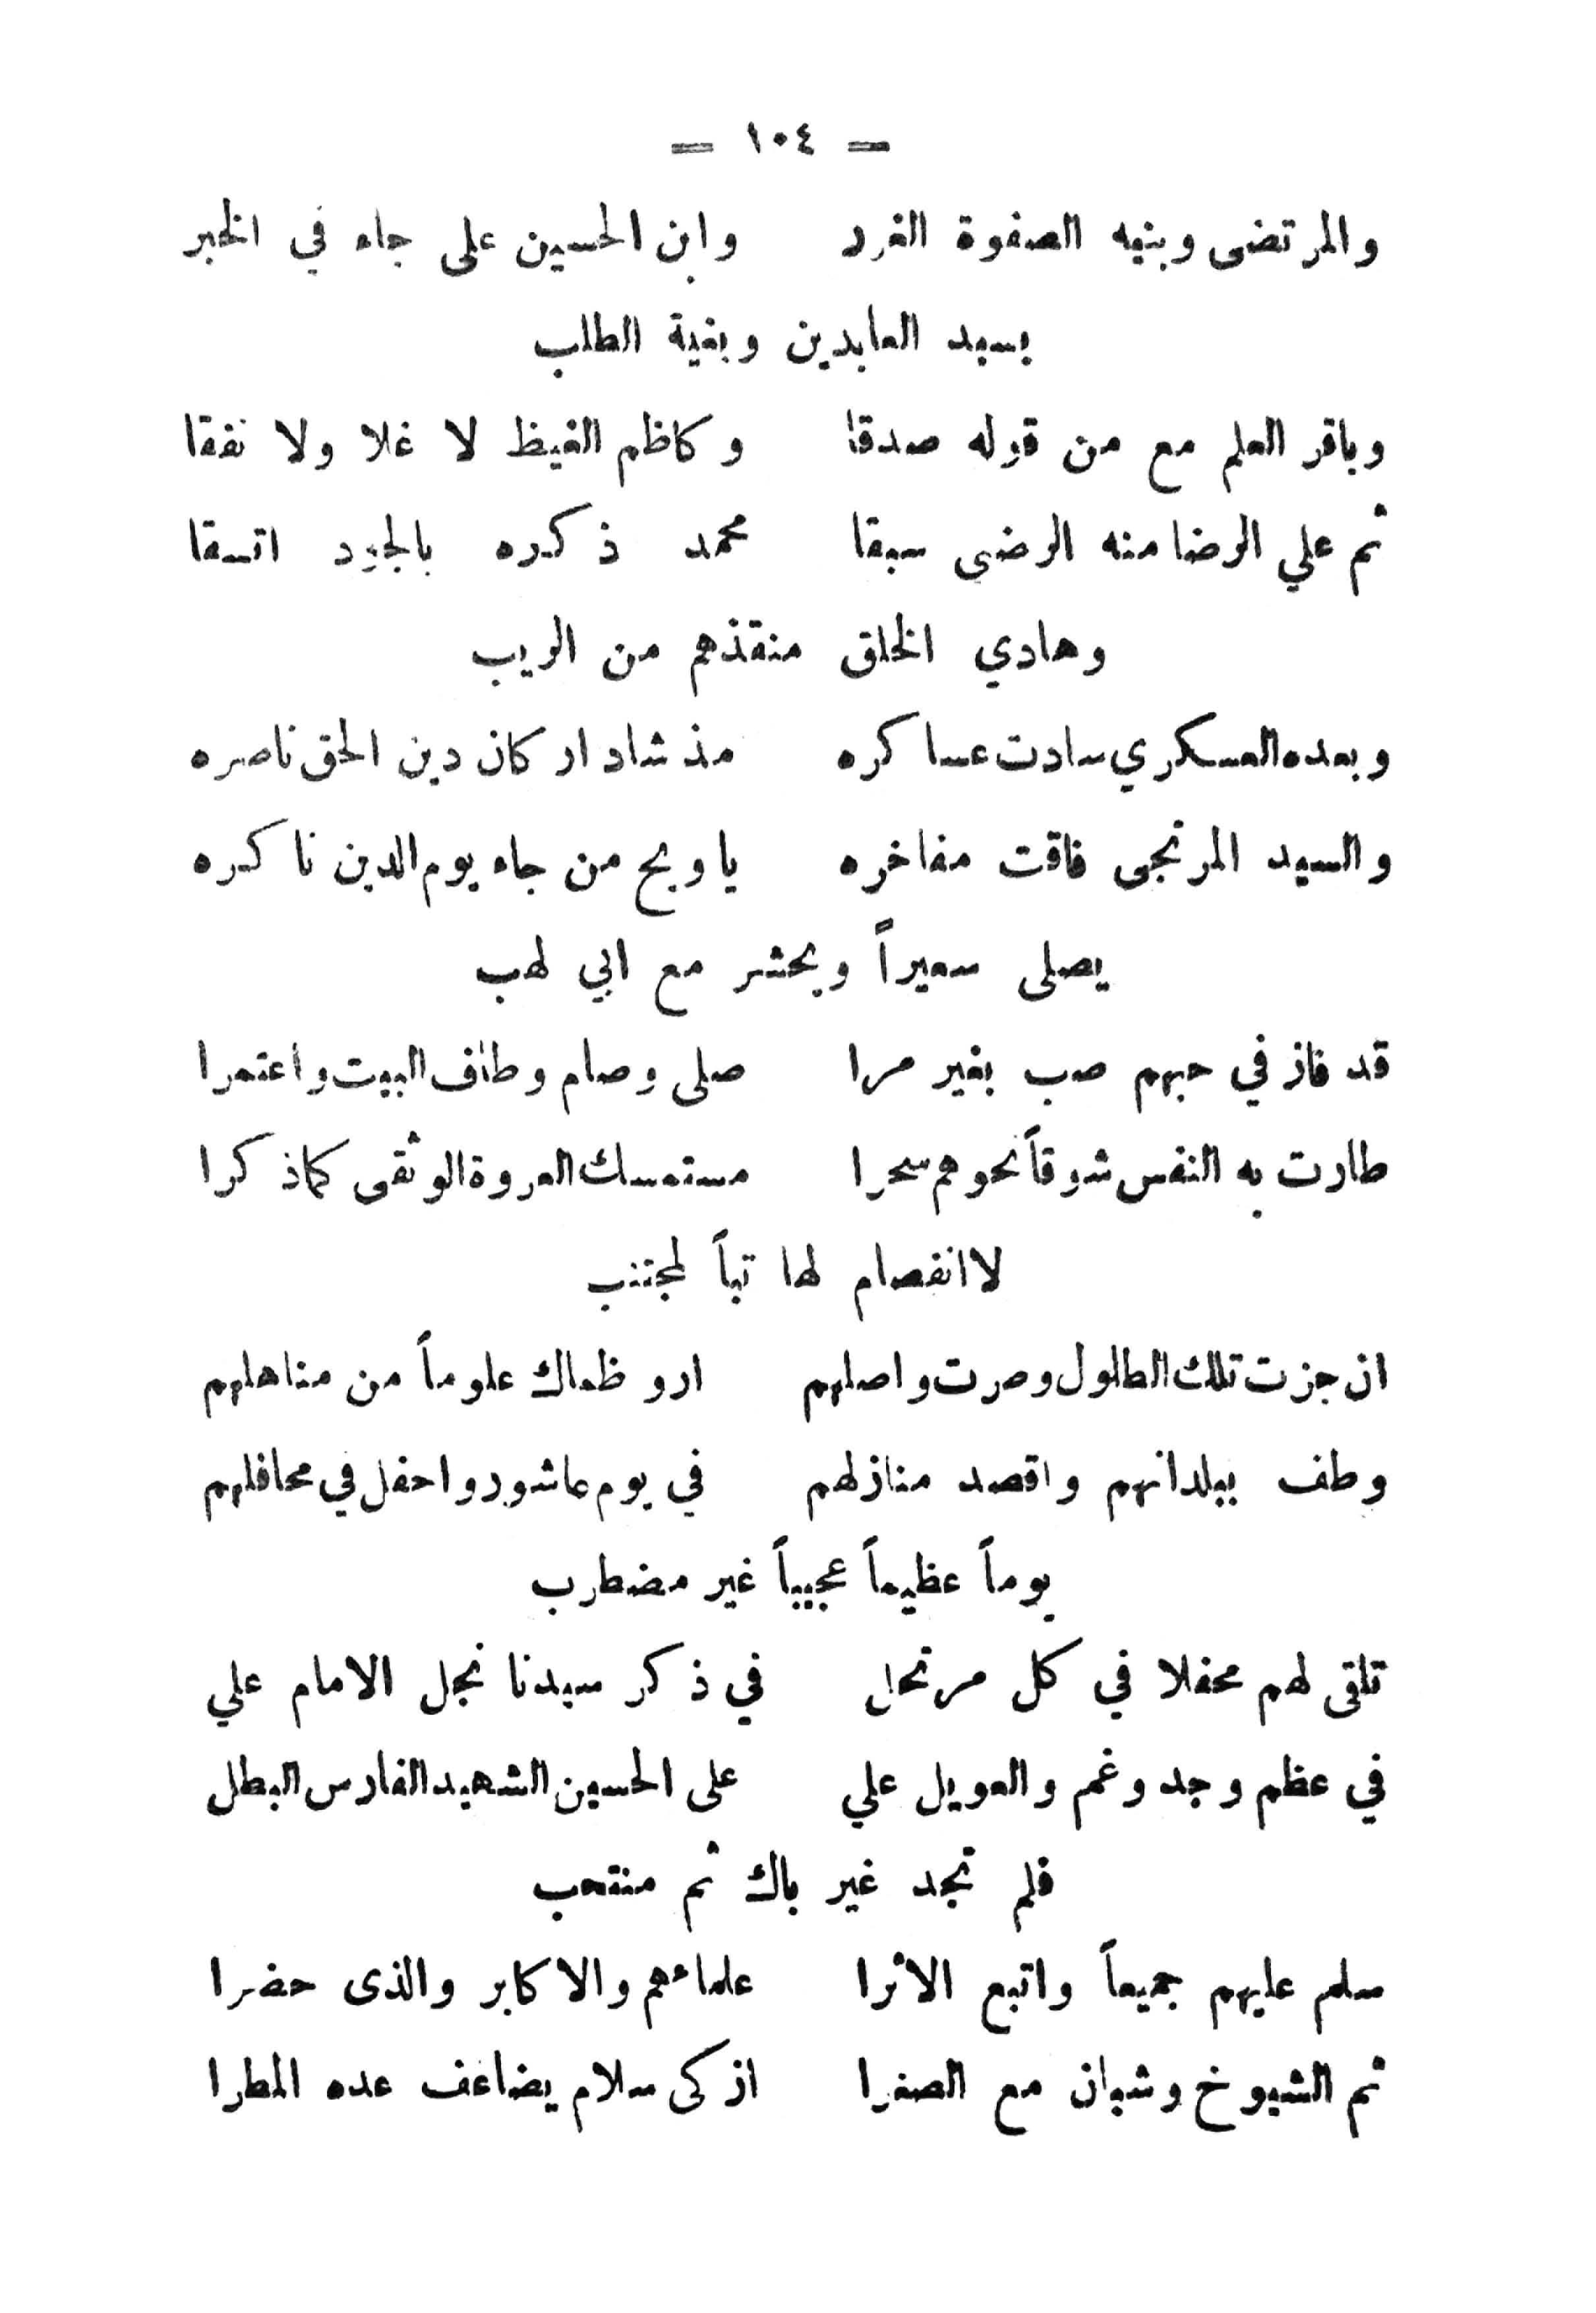 = ١٠٤ =
والمرتضى وبنيه الصفوة الغرر وابن الحسين على جاء في الخبر
بسيد العابدين وبغية الطلب
وباقر العلم مع من قوله صدقا وكاظم الغيظ لا غلا ولا نفقا
ثم علي الرضا منه الرضى سبقا محمد ذكره بالجود اتسقا
وهادي الخلق منقذهم من الريب
وبعده العسكري سادت عساكره مذ شاد اركان دين الحق ناصره
والسيد المرتجى فاقت مفاخره يا ويح من جاء يوم الدين ناكره
يصلى سعيراً ويحشر مع ابي لهب
قد فاز في حبهم صب بغير مرا صلى وصام وطاف البيت واعتمرا
طارت به النفس شوقاً نحوهم سحرا مستمسك العروة الوثقى كما ذكرا
لا انفصام لها تباً لمجتنب
ان جزت تلك الطلول وصرت واصلهم ارو ظماك علوماً من مناهلهم
وطف ببلدانهم واقصد منازلهم في يوم عاشور واحفل في محافلهم
يوماً عظيماً عجيباً غير مضطرب
تلقى لهم محفلا في كل مرتحل في ذكر سيدنا نجل الامام علي
في عظم وجد وغم والعويل علي على الحسين الشهيد الفارس البطل
فلم تجد غير باك ثم منتحب
سلم عليهم جميعاً واتبع الاثرا علماءهم والاكابر والذى حضرا
ثم الشيوخ وشبان مع الصغرا ازكى سلام يضاعف عده المطرا